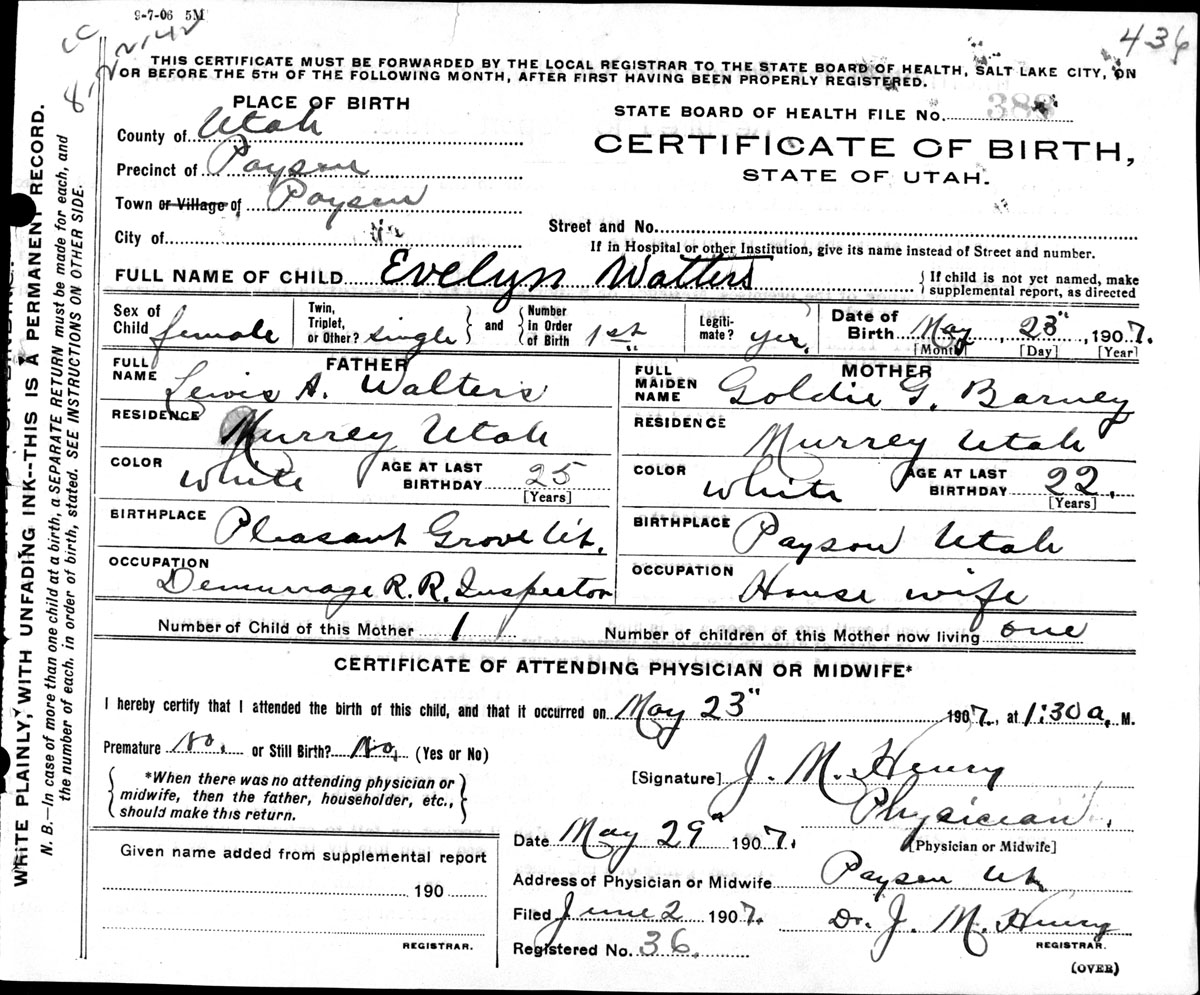 9-7-06 5M
436
THIS CERTIFICATE MUST BE FORWARDED BY THE LOCAL REGISTRAR TO THE STATE BOARD OF HEALTH, SALT LAKE CITY, ON
OR BEFORE THE 5TH OF THE FOLLOWING MONTH, AFTER FIRST HAVING BEEN PROPERLY REGISTERED.
WRITE PLAINLY, WITH UNFADING INK--THIS IS A PERMANENT RECORD.
N. B.—In case of more than one child at a birth, a SEPARATE RETURN must be made for each, and
the number of each, in order of birth, stated. SEE INSTRUCTIONS ON OTHER SIDE.
PLACE OF BIRTH
County of Utah
Precinct of Payson
Town or Village of Payson
City of
STATE BOARD OF HEALTH FILE No.
CERTIFICATE OF BIRTH,
STATE OF UTAH.
Street and No.
If in Hospital or other Institution, give its name instead of Street and number.
FULL NAME OF CHILD Evelyn Walters { If child is not yet named, make supplemental report, as directed
Sex of Child female Twin, Triplet, or Other? single } and { Number in Order of Birth 1st Legiti- mate? yes. Date of Birth May, 23", 1907.
[Month] [Day] [Year]
FATHER
FULL NAME Lewis A. Walters
RESIDENCE Murrey Utah
COLOR White AGE AT LAST BIRTHDAY 25
[Years]
BIRTHPLACE Pleasant Grove Ut.
OCCUPATION Demurrage R.R. Inspector
MOTHER
FULL MAIDEN NAME Goldie G. Barney
RESIDENCE Murrey Utah
COLOR White AGE AT LAST BIRTHDAY 22.
[Years]
BIRTHPLACE Payson Utah
OCCUPATION House wife
Number of Child of this Mother 1 Number of children of this Mother now living one
CERTIFICATE OF ATTENDING PHYSICIAN OR MIDWIFE*
I hereby certify that I attended the birth of this child, and that it occurred on May 23" 1907, at 1:30 a. M.
Premature No. or Still Birth? No. (Yes or No)
{ *When there was no attending physician or
midwife, then the father, householder, etc.,
should make this return. }
[Signature] J. M. Henry
Physician.
[Physician or Midwife]
Date May 29" 1907.
Address of Physician or Midwife Payson Ut
Filed June 2 1907. Dr. J. M. Henry
REGISTRAR.
Registered No. 36.
Given name added from supplemental report
190
REGISTRAR.
(OVER)